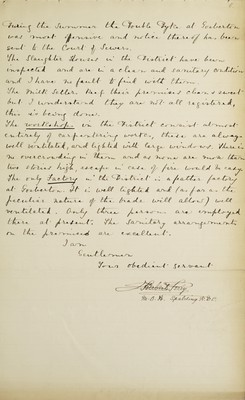 During the Summer the Double Dyke at Gosberton
was most offensive and notice thereof has been
sent to the Court of Sewers.
The Slaughter Houses in the District have been
inspected and are in a clean and sanitary condition
and I have no fault to find with them
The Milk Sellers keep their premises clean & sweet
but I understand they are not all registered,
this is being done.
The workshops in the District consist almost
entirely of carpentering works, these are always
well ventilated, and lighted with large windows. There is
no overcrowding in them and as none are more than
two stories high escape in case of fire would be easy
The only Factory in the District is a feather factory
at Gosberton. It is well lighted and (as far as the
peculiar nature of the trade will allow) well
ventilated. Only three persons are employed
there at present. The sanitary arrangements
on the premises are excellent.
I am
Gentlemen
Your obedient servant
M.O.H. Spalding R.D.C.